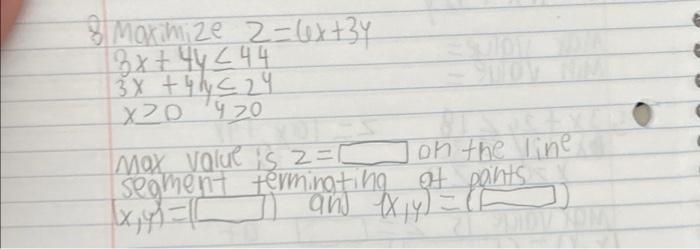 8 Maximize Z=6x+3y
8x+4y≤44
3x+4y≤24
x≥0 y≥0
Max value is z=[ ] on the line
segment terminating at points
(x,y)=([ ]) and (x,y)=([ ])